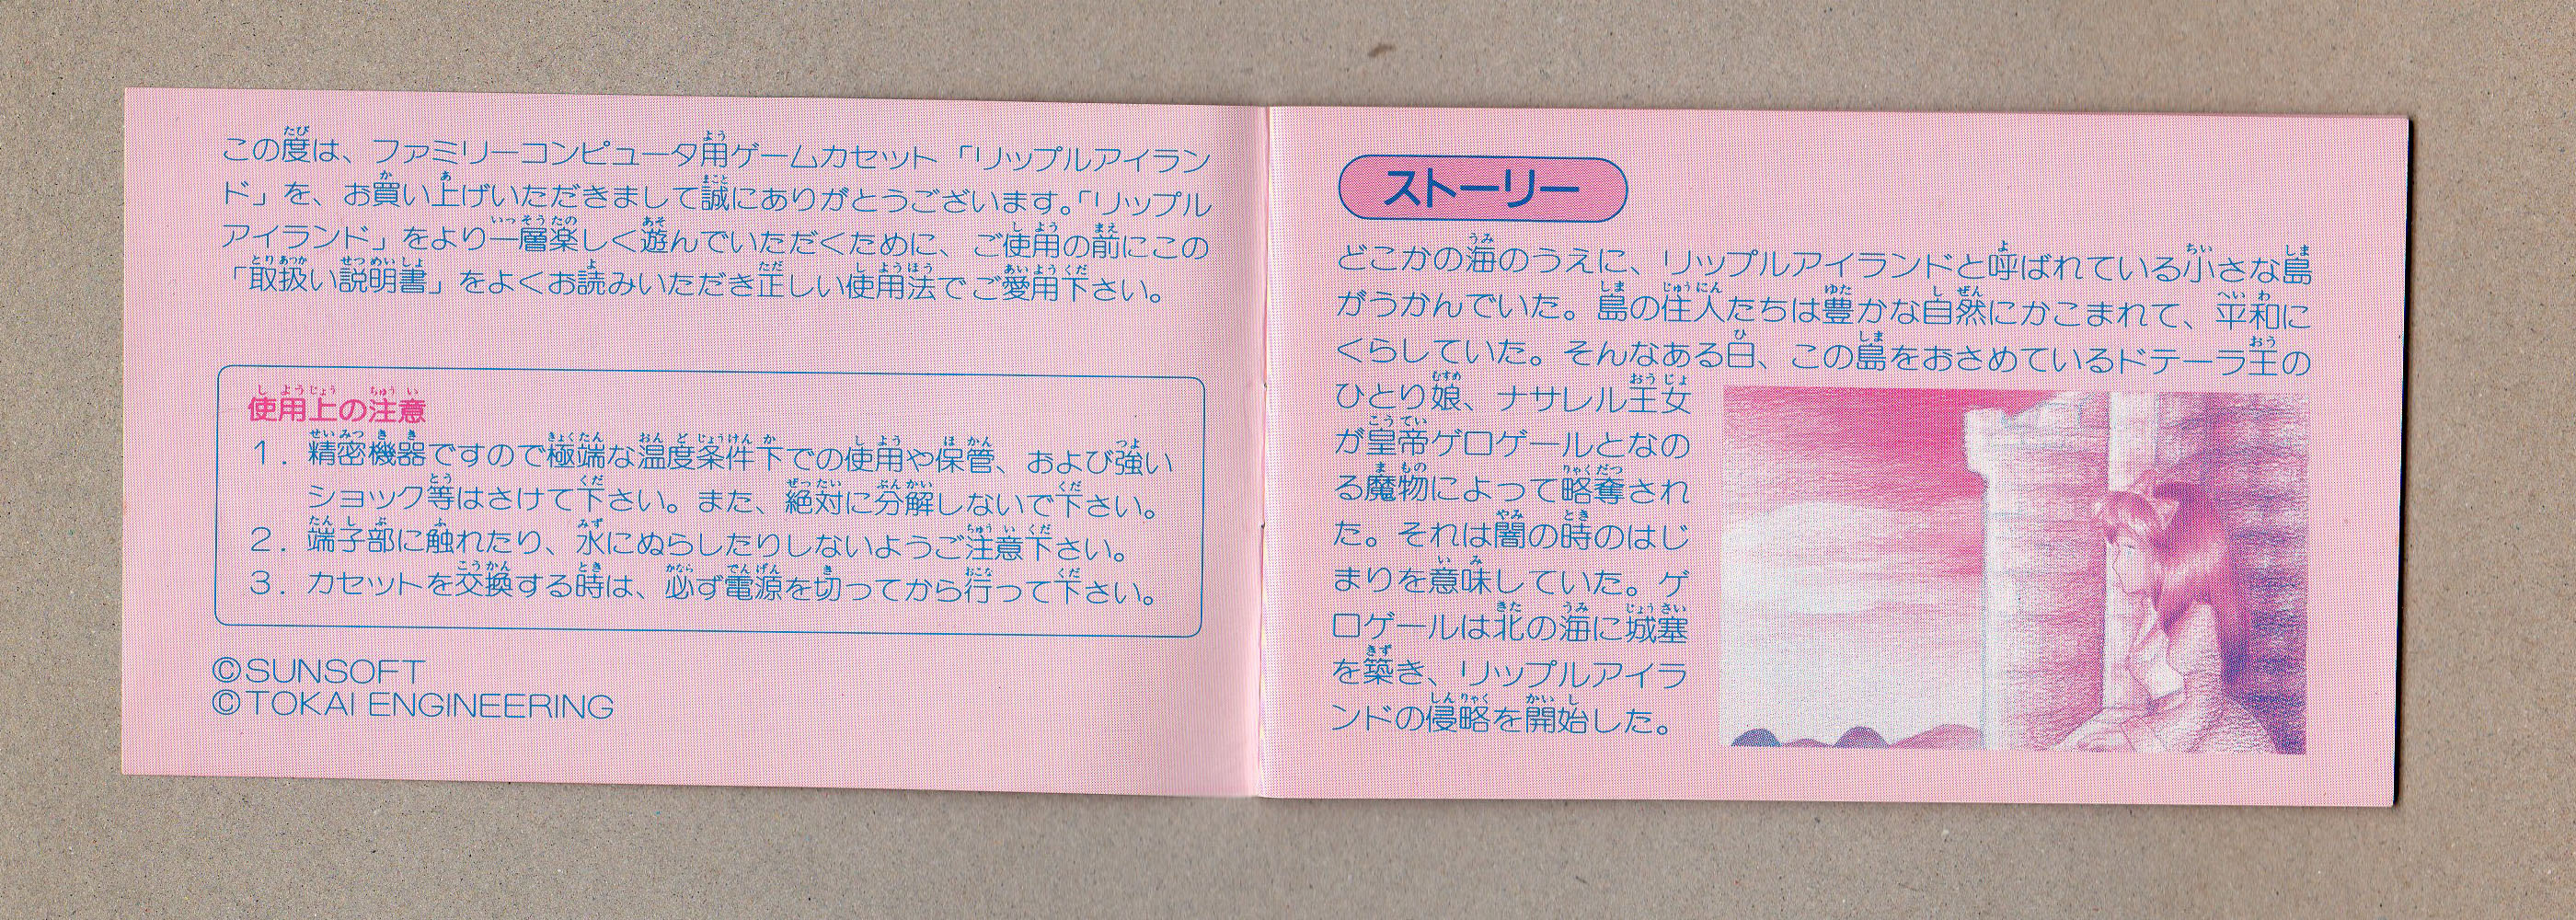 この度は、ファミリーコンピュータ用ゲームカセット「リップルアイラン
ド」を、お買い上げいただきまして誠にありがとうございます。「リップル
アイランド」をより一層楽しく遊んでいただくために、ご使用の前にこの
「取扱い説明書」をよくお読みいただき正しい使用法でご愛用下さい。
使用上の注意
1. 精密機器ですので極端な温度条件下での使用や保管、および強い
ショック等はさけて下さい。また、絶対に分解しないで下さい。
2. 端子部に触れたり、水にぬらしたりしないようご注意下さい。
3. カセットを交換する時は、必ず電源を切ってから行って下さい。
©SUNSOFT
©TOKAI ENGINEERING
ストーリー
どこかの海のうえに、リップルアイランドと呼ばれている小さな島
がうかんでいた。島の住人たちは豊かな自然にかこまれて、平和に
くらしていた。そんなある日、この島をおさめているドテーラ王の
ひとり娘、ナサレル王女
が皇帝ゲロゲールとなの
る魔物によって略奪され
た。それは闇の時のはじ
まりを意味していた。ゲ
ロゲールは北の海に城塞
を築き、リップルアイラ
ンドの侵略を開始した。